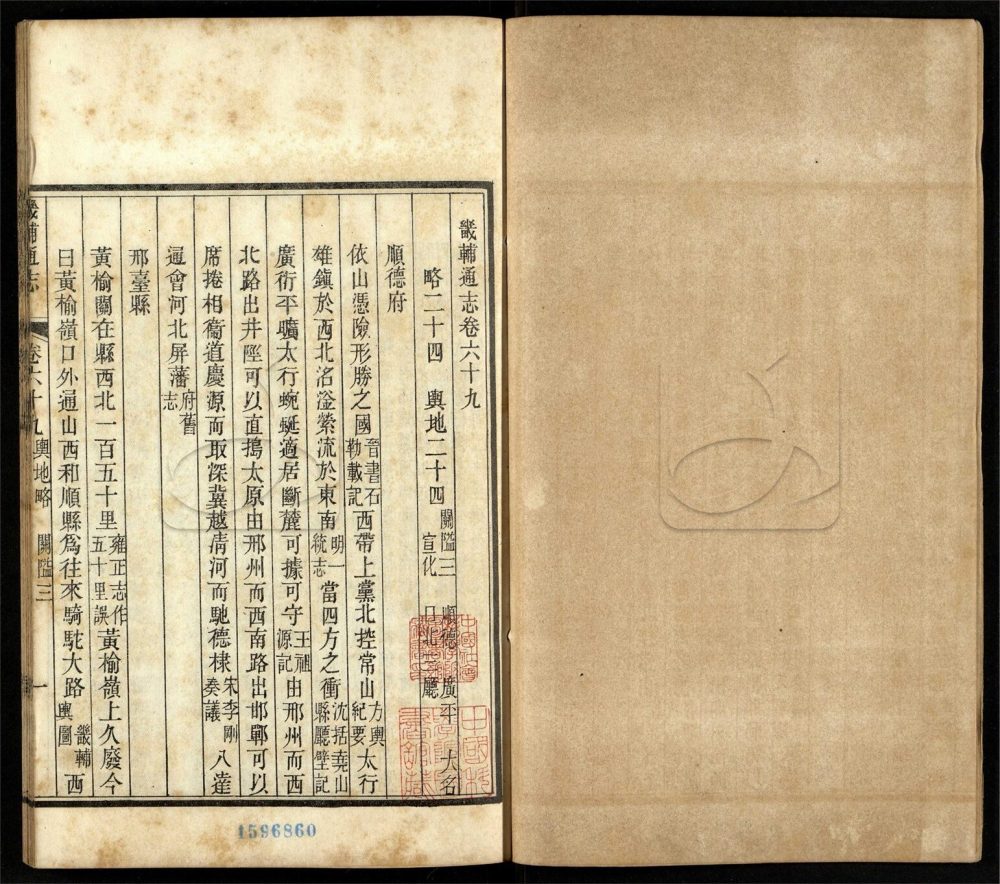 畿輔通志卷六十九
略二十四 輿地二十四 關隘三 順德 廣平 大名 宣化 口北三廳
順德府
依山憑險形勝之國晉書石勒載記西帶上黨北控常山方輿紀要太行
雄鎮於西北洺滏縈流於東南明一統志當四方之衝沈括堯山縣廳壁記
廣衍平曠太行蜿蜒適居斷麓可據可守王褪源記由邢州而西
北路出井陘可以直搗太原由邢州而西南路出邯鄲可以
席捲相衞道慶源而取深冀越清河而馳德棣宋李剛奏議八達
通會河北屏藩府舊志
邢臺縣
黃榆關在縣西北一百五十里雍正志作五十里誤黃榆嶺上久廢今
曰黃榆嶺口外通山西和順縣爲往來騎馱大路畿輔輿圖西
畿輔通志 卷六十九 輿地略 關隘三 一
1596860